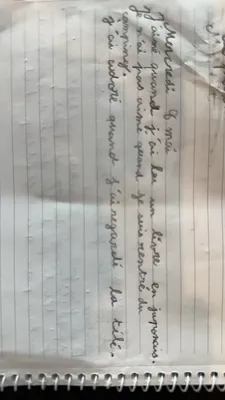 Mercredi 8 mai
J'aimé quand j'ai lu un livre en japonais.
Je n'ai pas aimé quand je suis rentré du
camping.
J'ai adoré quand j'ai regardé la télé.